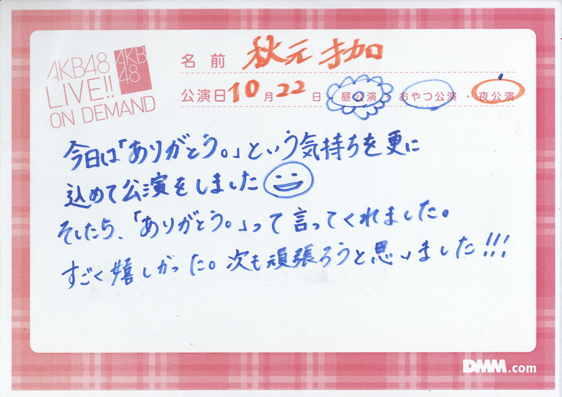 AKB48
LIVE!!
ON DEMAND
AKB
48
名前 秋元才加
公演日 10月22日 昼公演・おやつ公演・夜公演
今日は「ありがとう。」という気持ちを更に
込めて公演をしました
そしたら、「ありがとう。」って言ってくれました。
すごく嬉しかった。次も頑張ろうと思いました!!!
DMM.com